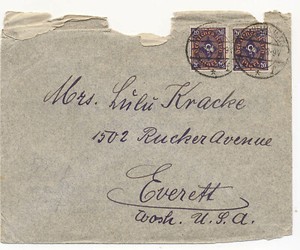 Mrs. Lulu Kracke
1502 Rucker Avenue
Everett
Wash. U.S.A.